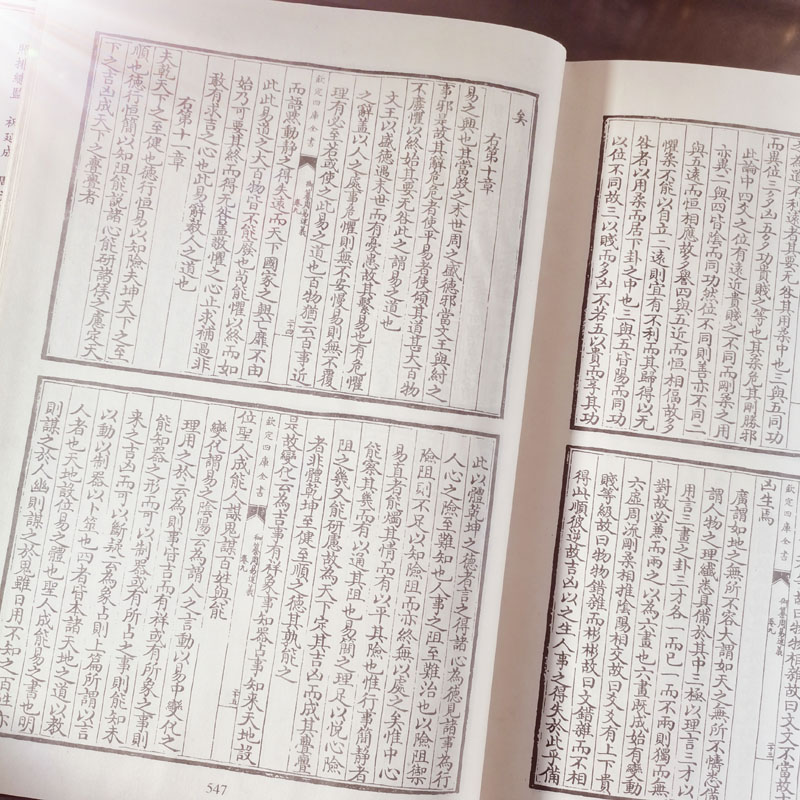 柔之為道不利遠者其要无咎其用柔中也三與五同功
而異位三多凶五多功貴賤之等也其柔危其剛勝邪
此論中四爻之位有遠近貴賤之不同而剛柔之用
亦異二與四皆陰而同功然位不同則善亦不同二
與五遠而恒相應故多譽四與五近而恒相偪故多
懼柔不能以自立二遠則宜有不利而其歸得以无
咎者以用柔而居下卦之中也三與五皆陽而同功
以位不同故三以賤而多凶不若五以貴而享其功
物相雜故曰文文不當故吉
欽定四庫全書
御纂周易述義
卷九
二十三
凶生焉
廣謂如地之無所不容大謂如天之無所不幬悉備
謂人物之理纎悉具備於其中三極以理言三才以
用言三畫之卦三才各一而已一而不兩則獨而無
對故必兼而兩之以為六畫也六畫既成始有變動
六虛周流剛柔相推陰陽相交故曰爻爻有上下貴
賤等級故曰物物錯雜而彬彬故曰文錯雜而不相
得此順彼逆故吉凶以之生人事之得失於此乎備
矣
右第十章
易之興也其當殷之末世周之盛德邪當文王與紂之
事邪是故其辭危危者使平易者使傾其道甚大百物
不廢懼以終始其要无咎此之謂易之道也
文王以盛德遇末世而有憂患故其繫易也有危懼
之辭蓋以人之處事危懼則無不安慢易則無不覆
理有必至若或使之此易之道也百物猶云百事近
而語默動靜之得失遠而天下國家之興亡靡不由
欽定四庫全書
御纂周易述義
卷九
二十四
此此易道之大百物皆不能廢也茍能懼以終而如
始乃可要其終而得无咎蓋敬懼之心止求補過非
敢有樂吉之心也此易辭教人之道也
右第十一章
夫乾天下之至健也德行恒易以知險夫坤天下之至
順也德行恒簡以知阻能說諸心能研諸侯之慮定天
下之吉凶成天下之亹亹者
此以體乾坤之德者言之得諸心為德見諸事為行
人心之險至難知也人事之阻至難治也以險阻禦
險阻則不足以知險阻而亦終無以處之矣惟中心
易直者能燭其情而有以平其險也惟行事簡靜者
能察其幾而有以通其阻也易簡之理足以悅心險
阻之幾又能研慮故為天下定其吉凶而成其亹亹
者非體乾坤至健至順之德其孰能之
是故變化云為吉事有祥象事知器占事知來天地設
欽定四庫全書
御纂周易述義
卷九
二十五
位聖人成能人謀鬼謀百姓與能
變化謂易之陰陽云為謂人之言動以易中變化之
理用之於云為則事皆吉而有祥或有所象之事則
能知器之形而可以制器或有所占之事則能知未
來之吉凶而可以斷疑云為象占則上篇所謂以言
以動以制器以卜筮也四者皆本諸天地之道以教
人者也天地故位易之體也聖人成能易之書也明
則謀之於人幽則謀之於鬼雖日用不知之百姓亦
547